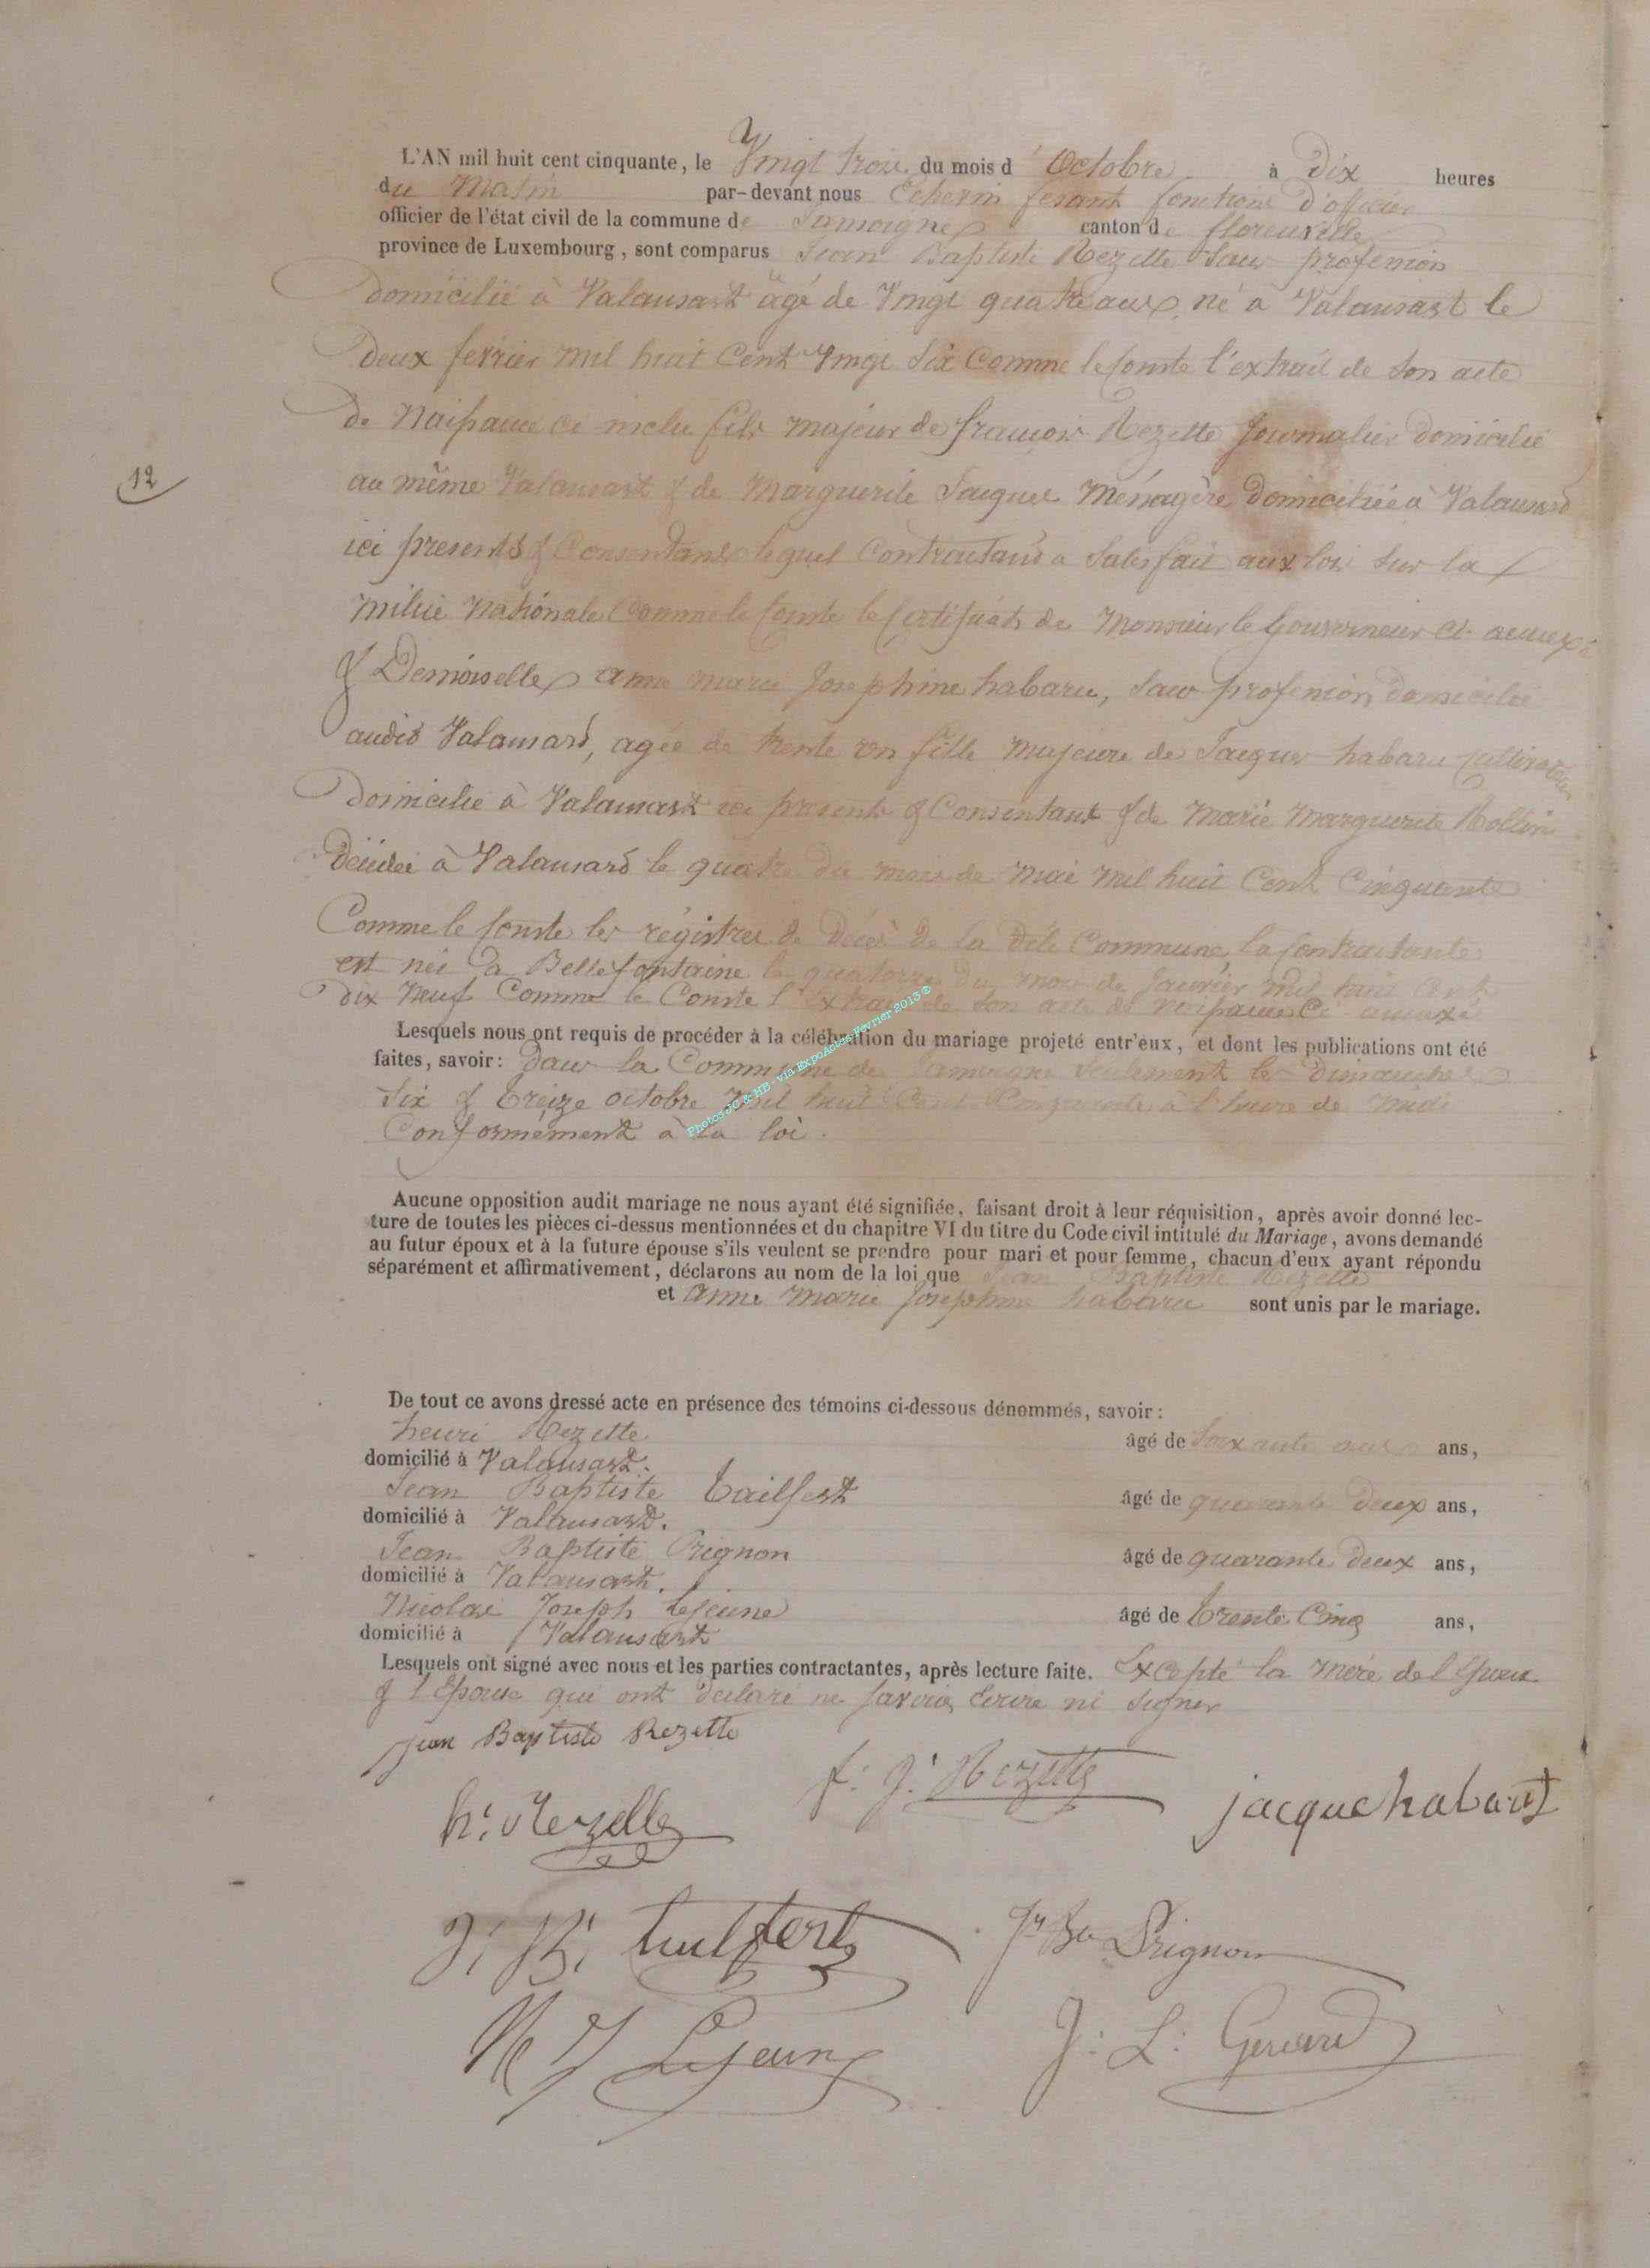 L'AN mil huit cent cinquante, le Vingt trois du mois d' Octobre à Dix heures
du Matin par-devant nous Echevin fesant fonctions d'officier
officier de l'état civil de la commune de Jamoigne canton de florenville
province de Luxembourg, sont comparus Jean Baptiste Rezette Sans profession
domicilié à Valansart âgé de Vingt quatre ans, né à Valansart le
deux fevrier mil huit Cent Vingt Six Comme le Conste l'extrait de son acte
de Naissance ci inclu fils majeur de françois Rezette Journalier domicilié
au même Valansart & de Marguerite Jacques Ménagère domiciliée à Valansard
12
ici presents & Consentans lequel Contractant a Satisfait aux lois sur la
milice Nationale Comme le Conste le Certificat de Monsieur le Gouverneur ci annexé
& Demoiselle anne marie Josephine habaru, Sans profession domiciliée
audit Valansard, agée de trente un fille majeure de Jacques habaru Cultivateur
domicilié à Valansart ici present & Consentant & de Marie Marguerite Rollin
décédée à Valansard le quatre du mois de Mai mil huit Cent Cinquante
Comme le Conste les régistres de décès de la dite Commune, la Contractante
est née à Bellefontaine le quatorze du mois de Janvier mil huit Cent
dix Neuf Comme le Conste l'Extrait de son acte de Naissance Ci annexé
Lesquels nous ont requis de procéder à la célébration du mariage projeté entr'eux, et dont les publications ont été
faites, savoir: dans la Commune de Jamoigne seulement les dimanches
Six & Treize octobre mil huit Cent Cinquante à l'heure de midi
Conformément à la loi.
Photos JC & HB - via ExpoActes Février 2013 ©
Aucune opposition audit mariage ne nous ayant été signifiée, faisant droit à leur réquisition, après avoir donné lec-
ture de toutes les pièces ci-dessus mentionnées et du chapitre VI du titre du Code civil intitulé du Mariage, avons demandé
au futur époux et à la future épouse s'ils veulent se prendre pour mari et pour femme, chacun d'eux ayant répondu
séparément et affirmativement, déclarons au nom de la loi que Jean Baptiste Rezette
et Anne Marie Josephine habaru sont unis par le mariage.
De tout ce avons dressé acte en présence des témoins ci-dessous dénommés, savoir:
henri Rezette âgé de Soixante ans ans,
domicilié à Valansart.
Jean Baptiste Tailfert âgé de quarante deux ans,
domicilié à Valansard.
Jean Baptiste Prignon âgé de quarante deux ans,
domicilié à Valansart.
Nicolas Joseph Lejeune âgé de Trente Cinq ans,
domicilié à Valansart
Lesquels ont signé avec nous et les parties contractantes, après lecture faite. Excepté la mère de l'Epoux
& l'Epouse qui ont declaré ne savoir Ecrire ni signer
jean Baptiste Rezette
f: J: Rezette
h: Rezette
jacque habarut
J: B: tailfert
Jn Bte Prignon
N J Lejeune
J: L: Gerard